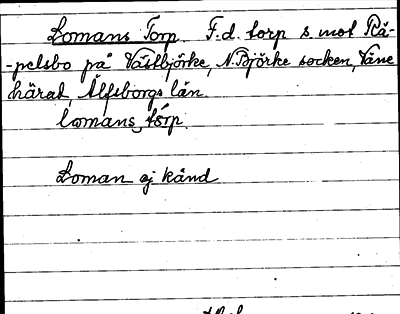 Lomans Torp. F.d. torp s. mot Rä-
-pelsbo på Västbjörke, N. Björke socken, Väne
härad, Älfsborgs län
lomans tårp.
Loman ej känd